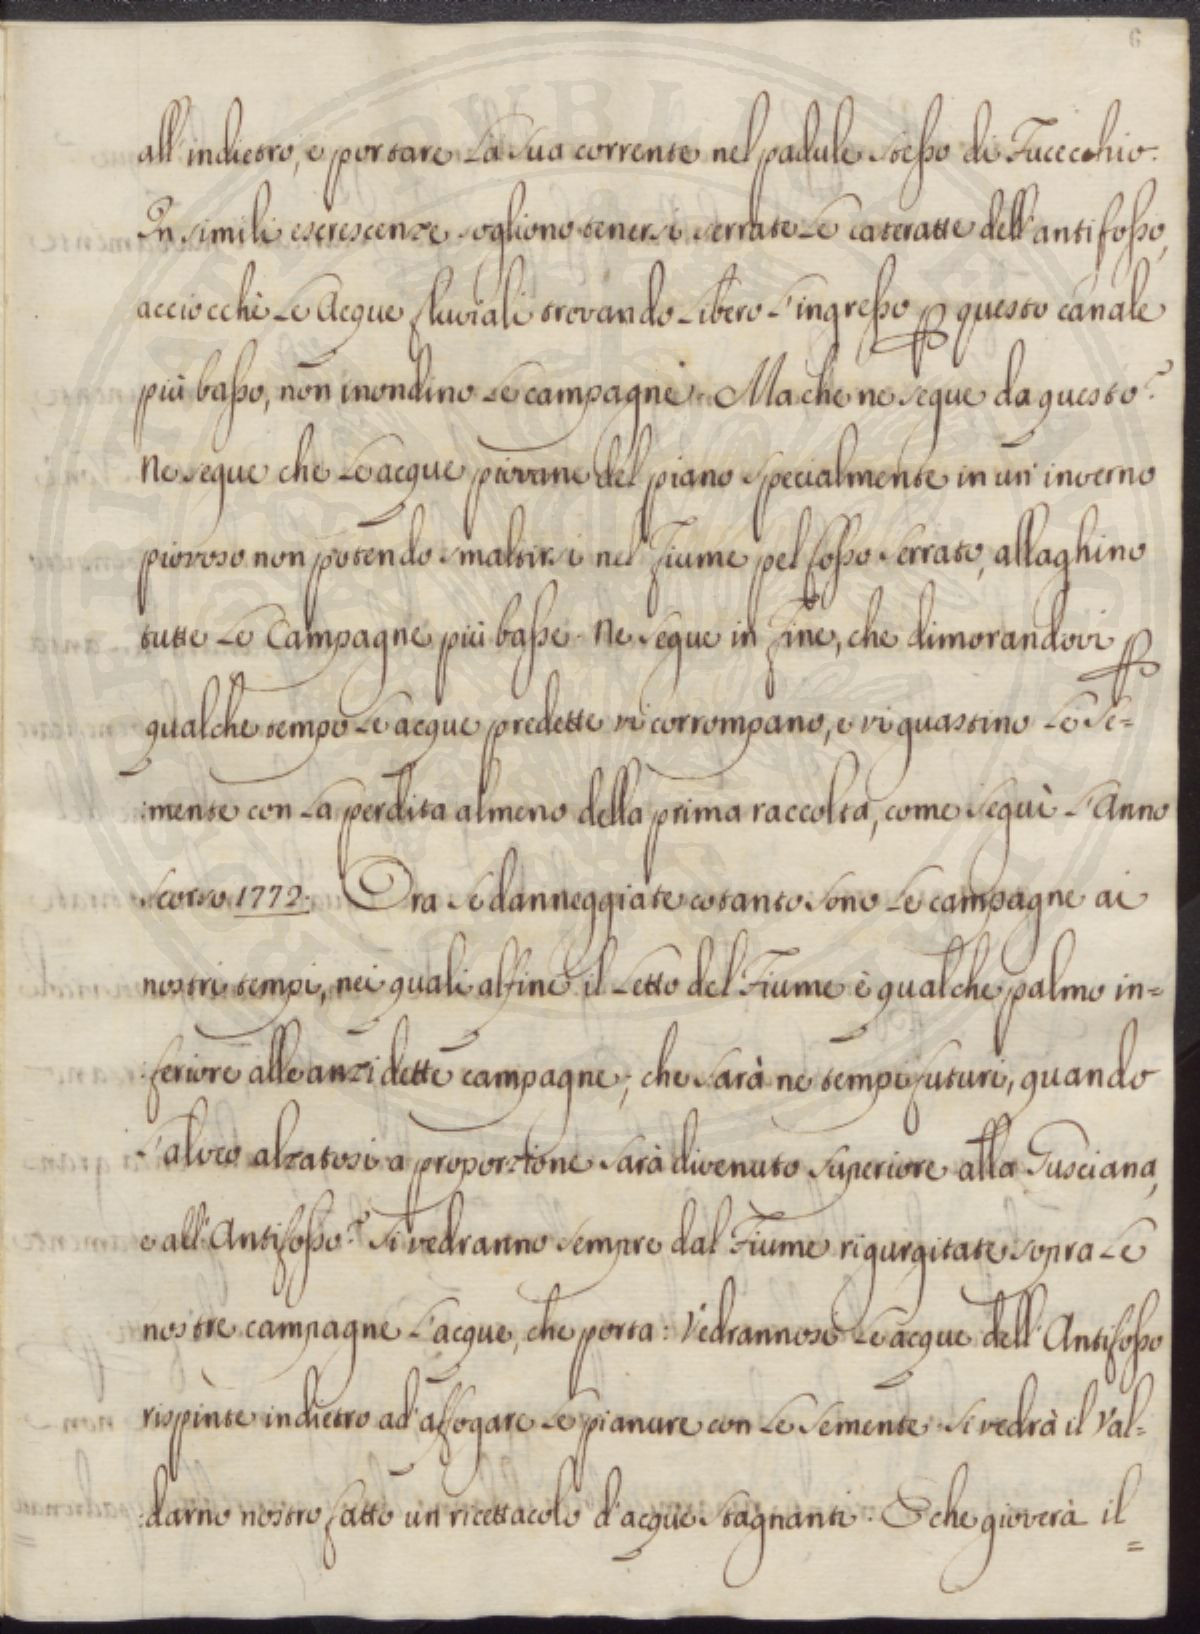 6
all'indietro, e portare la sua corrente nel padule stesso di Fucecchio.
In simili escrescenze sogliono tenersi serrate le cateratte dell'antifosso,
acciocchè le Acque fluviali trovando libero l'ingresso p questo canale
più basso, non inondino le campagne. Ma che ne segue da questo?
ne segue che le acque piovane del piano specialmente in un' inverno
piovoso non potendo smaltirsi nel Fiume pel fosso serrato, allaghino
tutte le Campagne più basse. Ne segue in Fine, che dimorandovi p
qualche tempo le acque predette vi corrompano, e vi guastino le Se=
:mente con la perdita almeno della prima raccolta, come seguì l'Anno
scorso 1772. Ora se danneggiate cotanto sono le campagne ai
nostri tempi, nei quali alfine il Letto del Fiume è qualche palmo in=
:feriore alle anzidette campagne; che sarà ne tempi futuri, quando
l'alveo alzatosi a proporzione sarà divenuto superiore alla Gusciana,
e all'Antifosso? Si vedranno sempre dal Fiume rigurgitate sopra le
nostre campagne l'acque, che porta: Vedrannosi le acque dell'Antifosso
rispinte indietro ad' affogare le pianure con le Semente. Si vedrà il Val=
:darno nostro fatto un ricettacolo d'acque stagnanti. E che gioverà il
=